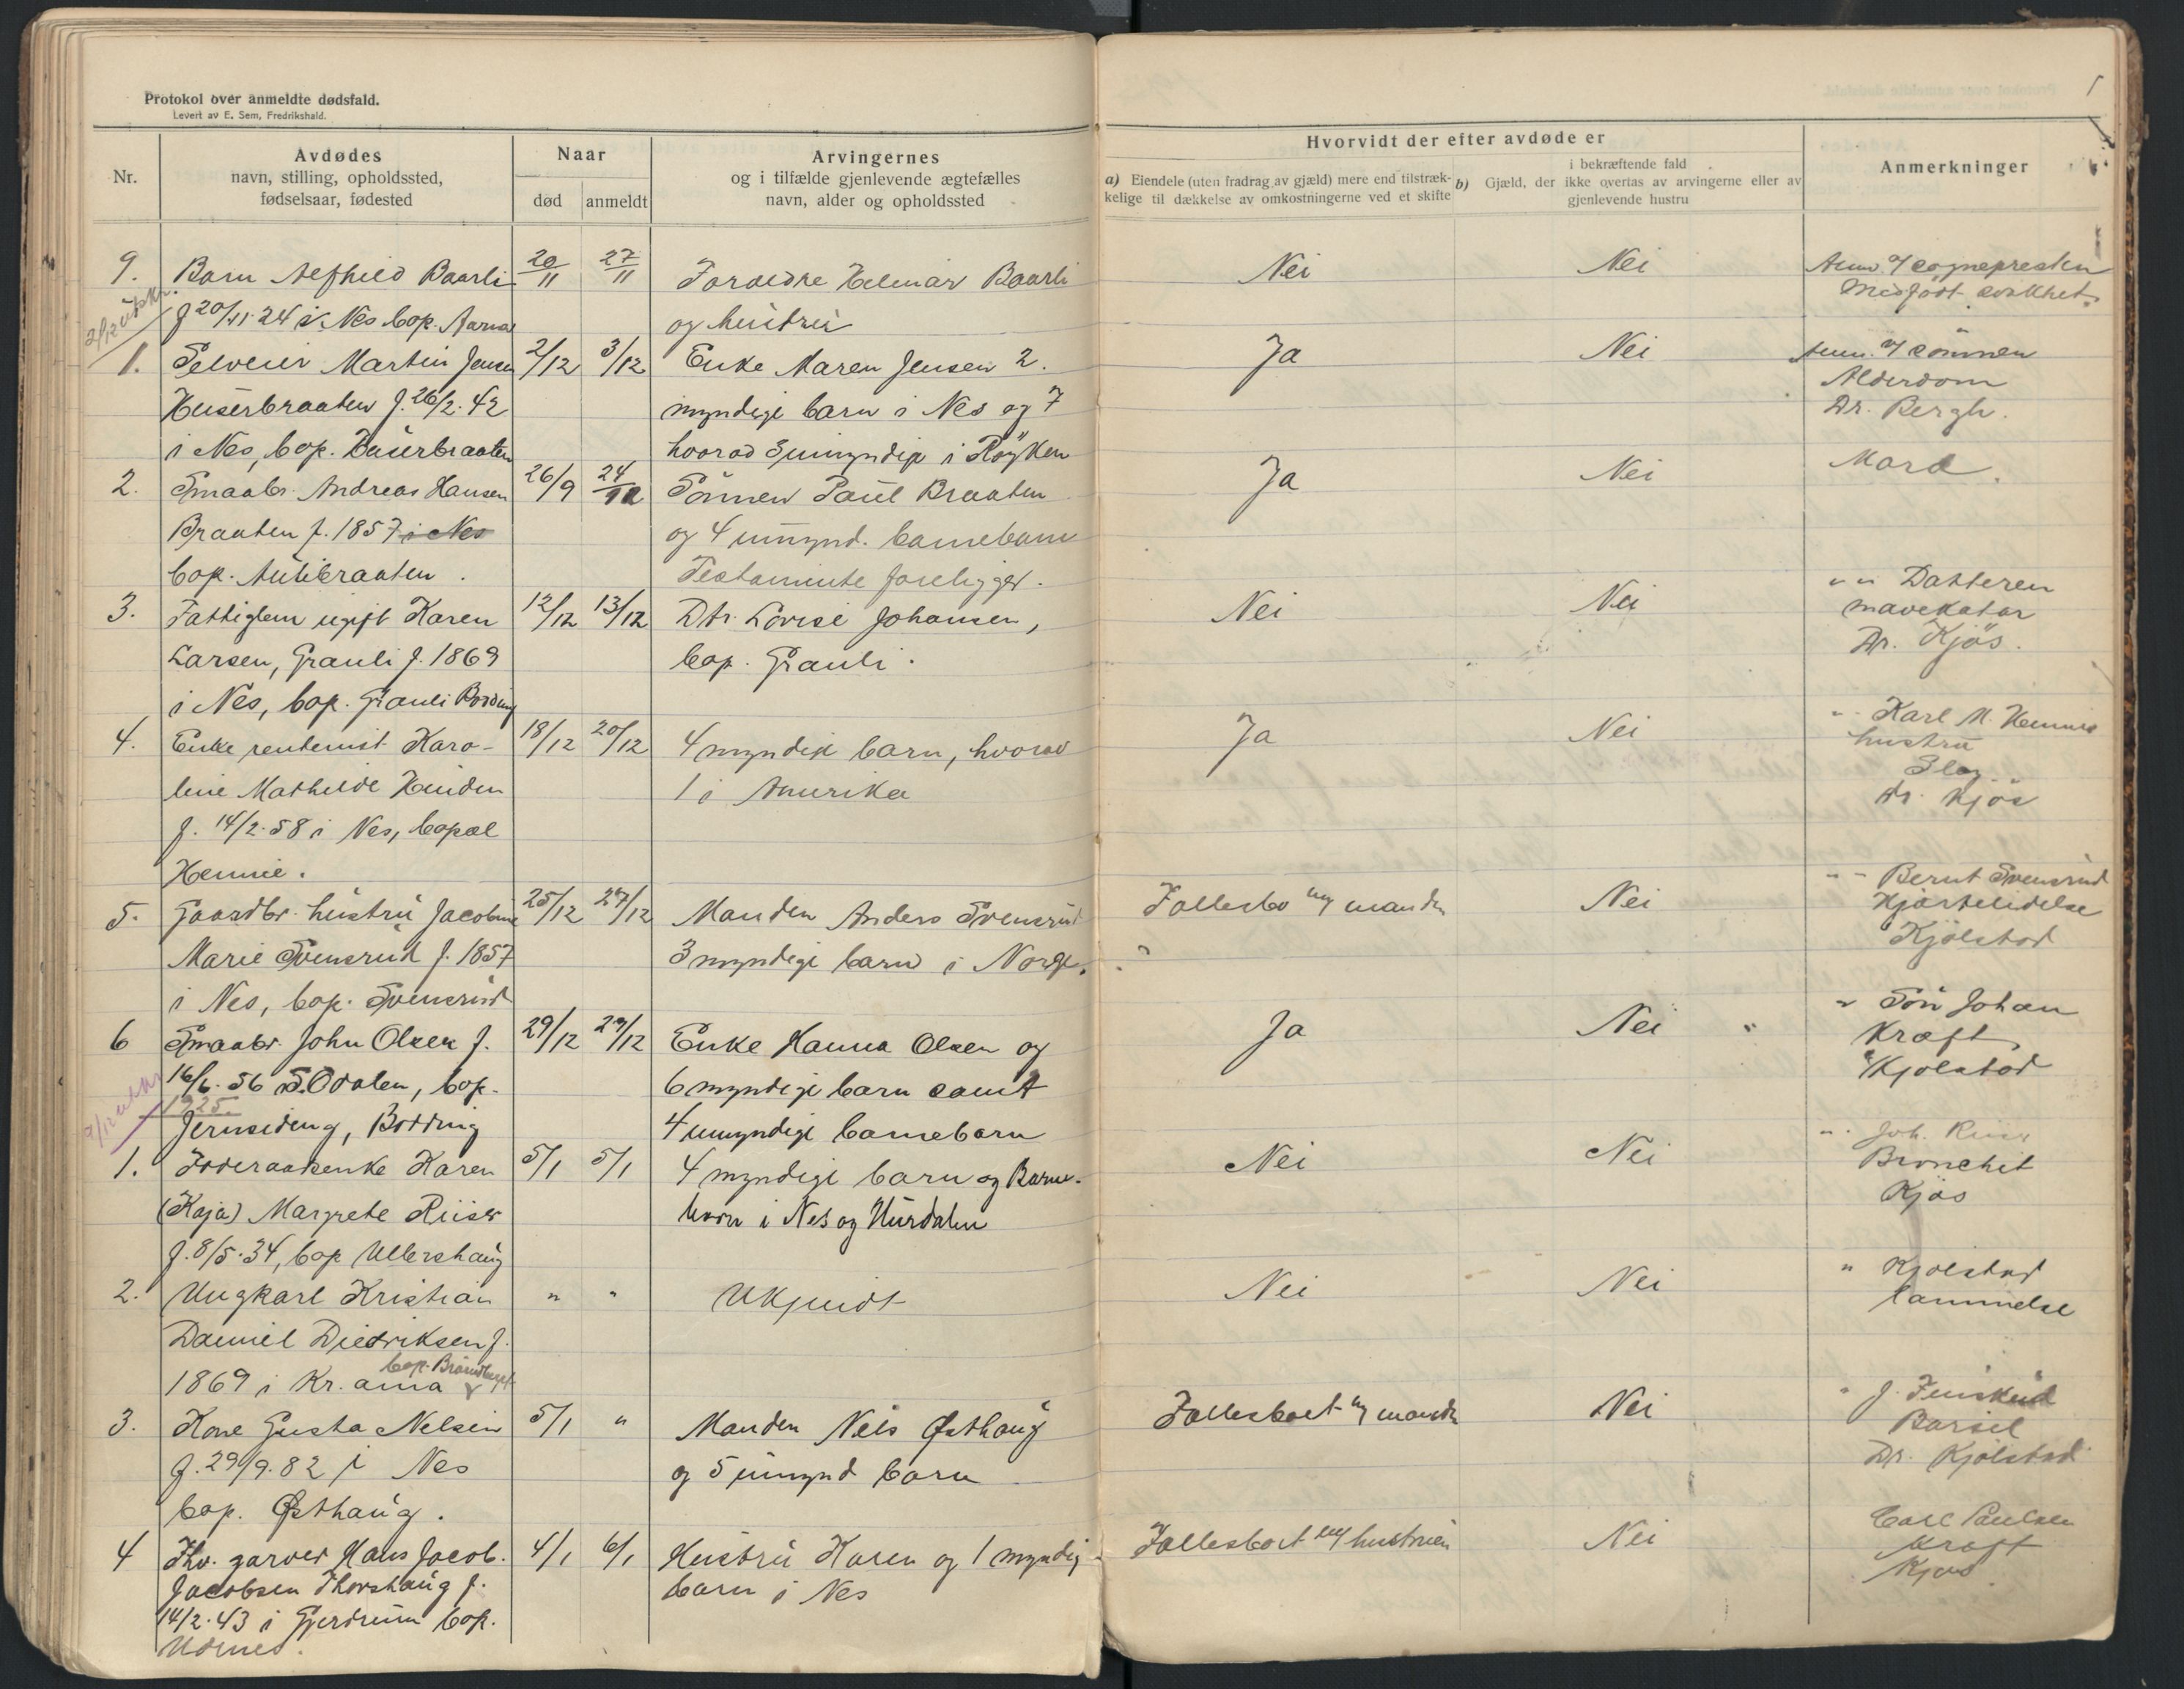 Protokol over anmeldte dødsfald.
Levert av E. Sem, Fredrikshald.
Nr.
Avdødes
navn, stilling, opholdssted,
fødselsaar, fødested
Naar
død
anmeldt
Arvingernes
og i tilfælde gjenlevende ægtefælles
navn, alder og opholdssted
Hvorvidt der efter avdøde er
a) Eiendele (uten fradrag av gjæld) mere end tilstræk-
kelige til dækkelse av omkostningerne ved et skifte
i bekræftende fald
b) Gjæld, der ikke overtas av arvingerne eller av
gjenlevende hustru
Anmerkninger
1
9. Barn Alfhild Baarli 20/11 27/11 Foreldre Helmar Baarli Nei Nei Anm. af sogneprésten
Medfødt svakhet
f 20/11 24 i Nes bop. Aarnes og hustru
1. Selveier Martin Jensen 2/12 3/12 Enke Maren Jensen 2. Ja Nei Anm. af sønnen
Huserbraaten f. 26/2.42 myndige barn i Nes og 7 Alderdom
Dr. Bergh.
i Nes, bop. hvorav 3 umyndige i Røyken
2. Smaabr. Andreas Hansen 26/9 24/12 Sønnen Paul Braaten Ja Nei Mord.
Braaten f. 1857 i Nes og 4 umynd. barnebarn
bop. Testamente foreligger.
3. Fattiglem ugift Karen 12/12 13/12 Dtr. Lovise Johansen, Nei Nei " " Datteren
mavekatar
Larsen, Grauli f. 1869 bop. Grauli. Dr. Kjøs.
i Nes, bop. Grauli Bodding
4. Enke rentenist Karo- 18/12 20/12 4 myndige barn, hvorav Ja Nei " Karl M. Hennie
hustru
line Mathilde 1 i Amerika Slag
Dr. Kjøs
f. 14/2.58 i Nes, bopæl
Hennie.
5. Gaardbr. hustru Jacobine 25/12 27/12 Manden Anders Svensrud Fællesbo m/ manden Nei " " Bernt Svensrud
Hjertelidelse
Marie Svensrud f. 1857 3 myndige barn i Norge. Kjølstad
i Nes, bop. Svensrud
6 Smaabr. John Olsen f. 29/12 29/12 Enke Hanna Olsen og Ja Nei " Søn Johan
Kræft
16/6.56 S. Odalen, bop. 6 myndige barn samt Kjølstad
1925.
Jernseideng, Bodding 4 umyndige barnebarn
1. Foderaadsenke Karen 5/1 5/1 4 myndige barn og Barne- Nei Nei " Joh. Riiser
Bronchit
(Kaja) Margrete Riiser barn i Nes og Hurdalen Kjøs
f. 8/5.34, bop Ullershaug
2. Ungkarl Kristian " " Ukjendt Nei Nei " Kjølstad
lammelse
Daniel Diedriksen f.
bop. Brandhaget
1869 i Kr.ania
3. Kone Gusta Nelsen 5/1 " Manden Nels Østhaug Fællesboet m/ manden Nei " J.
Barsel
f. 29/9.82 i Nes og 5 umynd barn Dr. Kjølstad
bop. Østhaug.
4 Fhv. garver Hans Jacob. 4/1 6/1 Hustru Karen og 1 myndig Fællesboet m/ hustruen Nei Carl Paulsen
Kræft
Jacobsen Thorshaug f. barn i Nes Kjøs
14/2.43 i Gjerdrum bop.
Udenes.